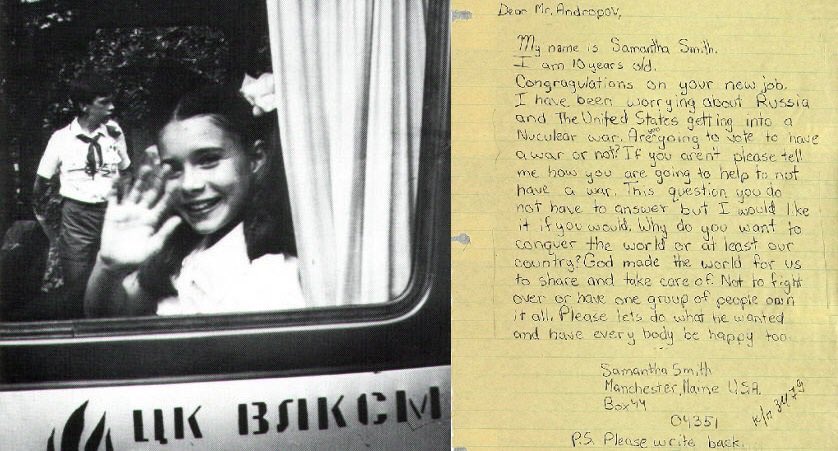 ЦК ВЛКСМ
Dear Mr. Andropov,
My name is Samantha Smith.
I am 10 years old.
Congragulations on your new job.
I have been worrying about Russia
and The United States getting into a
Nuculear war. Are you going to vote to have
a war or not? If you aren't please tell
me how you are going to help to not
have a war. This question you do
not have to answer but I would like
it if you would. Why do you want to
conquer the world or at least our
country? God made the world for us
to share and take care of. Not to fight
over or have one group of people own
it all. Please lets do what he wanted
and have every body be happy too.
Samantha Smith
Manchester, Maine U.S.A.
Box 44
04351
P.S. Please write back.